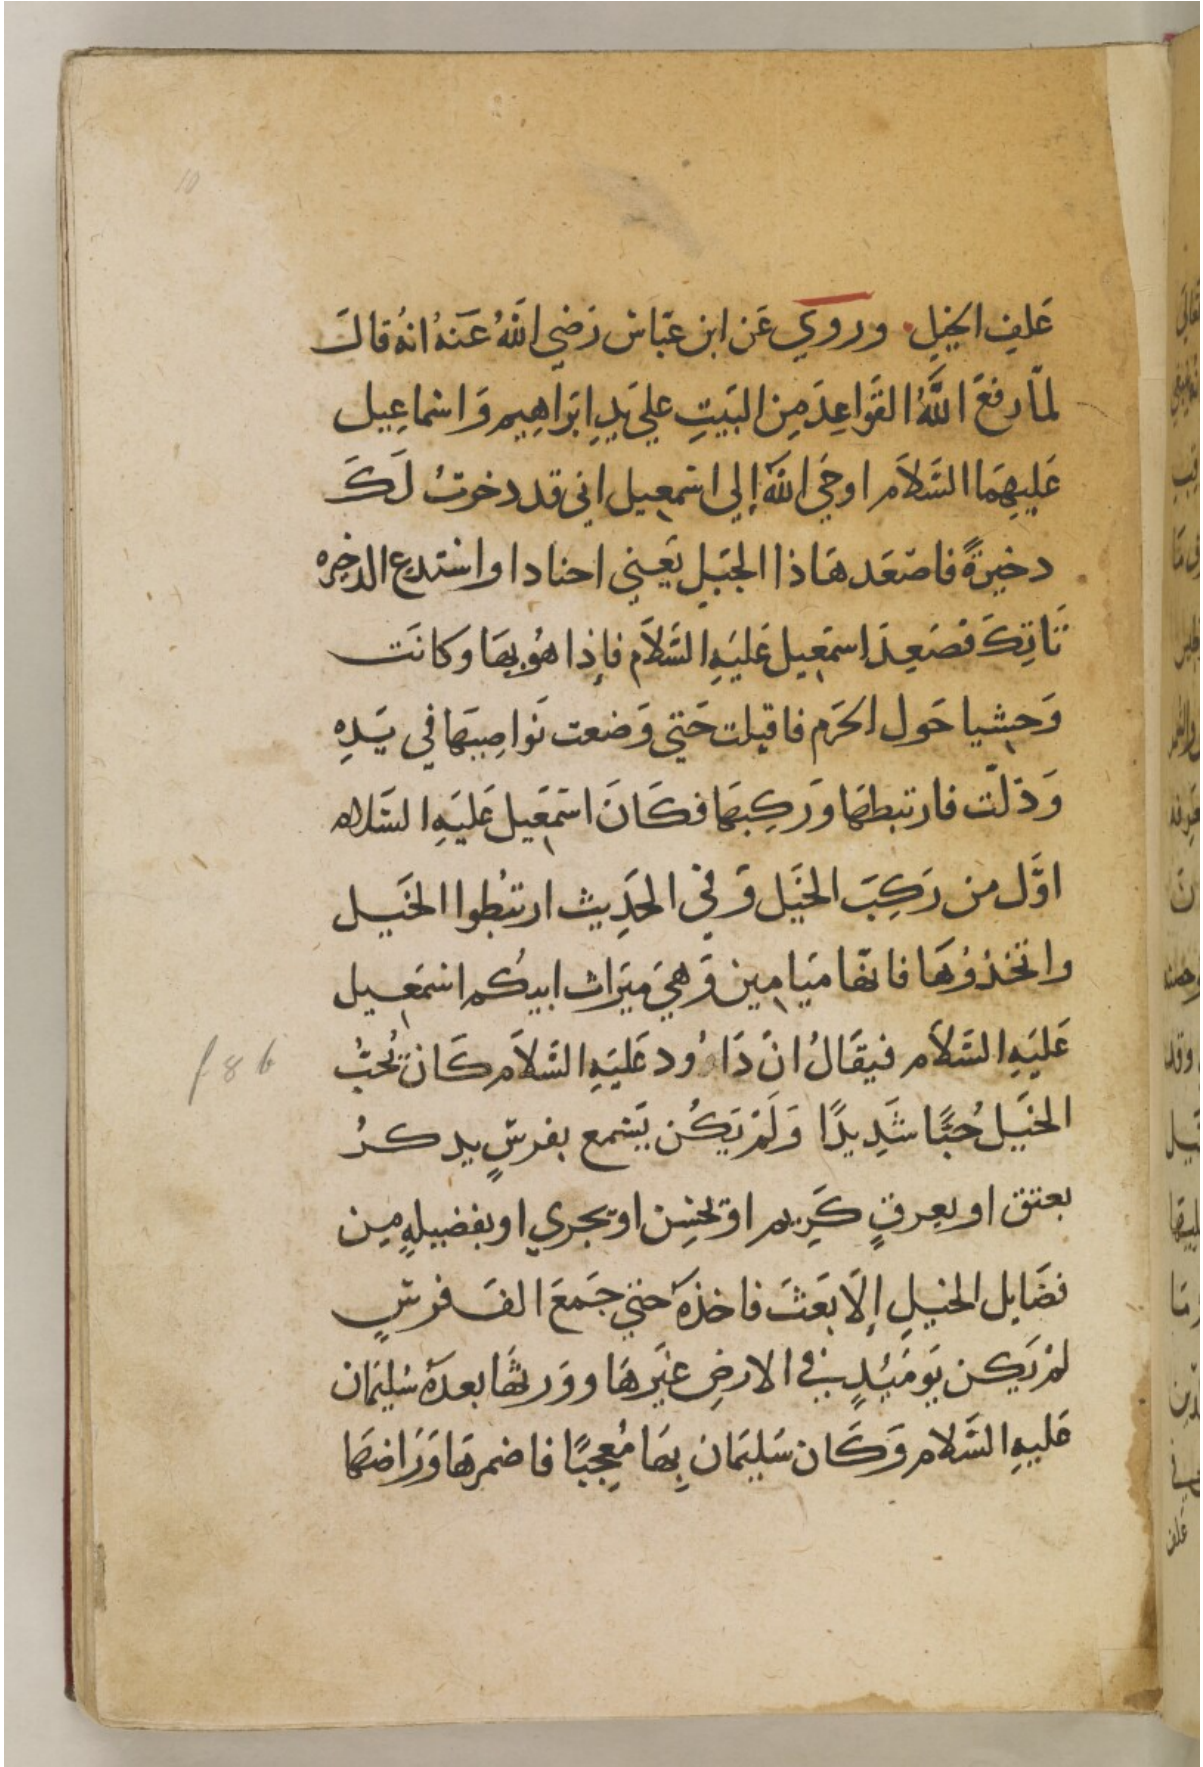 عَلفِ الخيلِ. وروي عَن ابن عبّاس رَضي اللهُ عَنهُ انهُ قالَ
لمّا رفعَ اللَّهُ القَواعِدَ مِن البَيتِ علي يَدِ ابرَاهِيم وَاسماعِيل
عَليهِمَا السَّلاَم اوحَي اللَّهَ إلي اسمعيل اني قد دخرتُ لَكَ
دخيرَةً فاصعَد هَاذا الجبَلِ يَعني احنادا واستدع الدخيره
تَاتِكَ فصَعِدَ اسمَعيل عَليَهِ السَّلاَم فإذا هُو بهَا وكانَت
وَحشيا حَول الحَرَم فاقبلت حَتي وَضعت نَواصِيهَا في يَدِهِ
وَذلّت فارتبطهَا ورَكِبهَا فكَانَ اسمَعَيل عَليَهِ السَّلام
اوَّل من رَكِبَ الخَيَل وَفي الحَدِيث ارتبُطوا الخَيل
واتخذُوُهَا فانّها ميَامين وَهيَ ميَراث ابيكُم اسمَعيل
عَليَهِ السَّلاَم فيقَالُ انَّ دَاوُود عَليَهِ السَّلاَم كَانَ يُحبُ
الخيَل حُبًّا شَدِيدًا وَلَمْ يَكُن يَسَمع بفرسٍ يدكرُ
بعتق او بعِرقٍ كَرِيم او بحُسِن او بجري او بفضيلهٍ مِن
فضَايل الخيلِ إلَا بَعَثَ فاخذهَ حتي جَمعَ الفَ فرسٍ
لمْ يَكن يَومَئِدٍ في الارضِ غيَرهَا ووَرثهَا بعدَهُ سُليَمان
عَليهِ السَّلام وَكَان سَليَمانَ بِهَا مُعِجبًا فاضمرهَا وَرَاضهَا
f 8 b
10